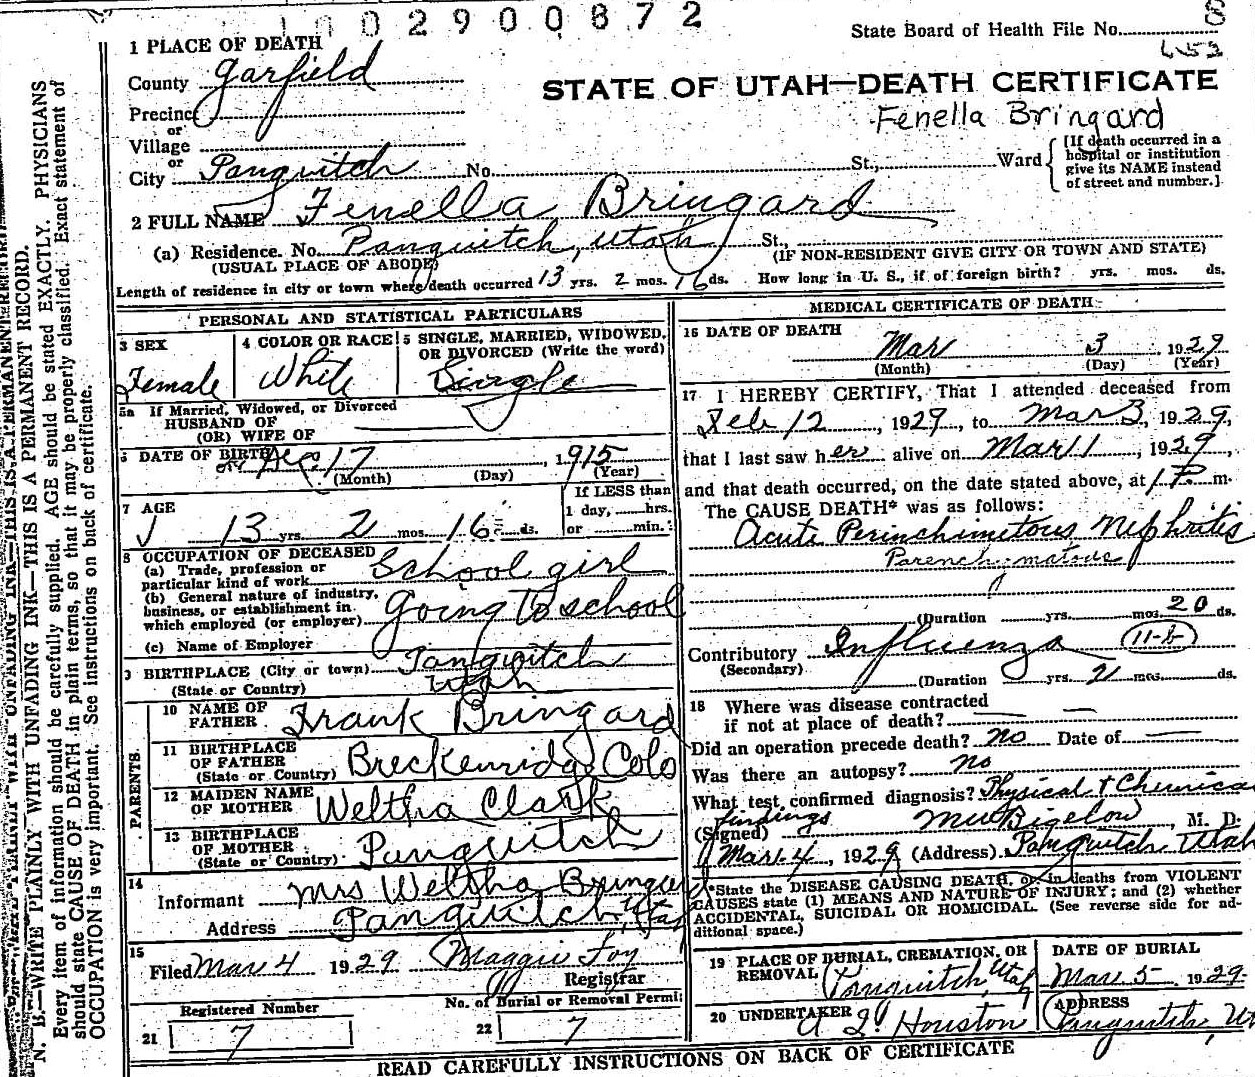 1002900872
State Board of Health File No. 8
653
1 PLACE OF DEATH
County Garfield
STATE OF UTAH—DEATH CERTIFICATE
Precinct
Fenella Bringard
or
Village
or
City Panguitch No. St., Ward
[If death occurred in a
hospital or institution
give its NAME instead
of street and number.]
2 FULL NAME Fenella Bringard
(a) Residence. No. Panguitch, Utah St.,
(USUAL PLACE OF ABODE) (IF NON-RESIDENT GIVE CITY OR TOWN AND STATE)
Length of residence in city or town where death occurred 13 yrs. 2 mos. 16 ds. How long in U. S., if of foreign birth? yrs. mos. ds.
PERSONAL AND STATISTICAL PARTICULARS
3 SEX
Female
4 COLOR OR RACE
White
5 SINGLE, MARRIED, WIDOWED,
OR DIVORCED (Write the word)
Single
5a If Married, Widowed, or Divorced
HUSBAND OF
(OR) WIFE OF
6 DATE OF BIRTH Dec. 17, 1915
(Month) (Day) (Year)
7 AGE
13 yrs. 2 mos. 16 ds.
If LESS than
1 day, hrs.
or min.
8 OCCUPATION OF DECEASED
(a) Trade, profession or
particular kind of work School girl
(b) General nature of industry,
business, or establishment in
which employed (or employer) going to school
(c) Name of Employer
9 BIRTHPLACE (City or town) Panguitch
(State or Country) Utah
PARENTS
10 NAME OF
FATHER Frank Bringard
11 BIRTHPLACE
OF FATHER
(State or Country) Breckenridge Colo
12 MAIDEN NAME
OF MOTHER Weltha Clark
13 BIRTHPLACE
OF MOTHER
(State or Country) Panguitch
14
Informant Mrs Weltha Bringard
Address Panguitch, Utah
15
Filed Mar 4 1929 Maggie Foy
Registrar
Registered Number
21 7
No. of Burial or Removal Permit
22 7
MEDICAL CERTIFICATE OF DEATH
16 DATE OF DEATH
Mar 3 1929
(Month) (Day) (Year)
17 I HEREBY CERTIFY, That I attended deceased from
Feb 12, 1929, to Mar 3, 1929,
that I last saw her alive on Mar 11, 1929,
and that death occurred, on the date stated above, at 1 P. m.
The CAUSE DEATH* was as follows:
Acute Perinchimitous Nephritis
Parenchymatous
(Duration yrs. mos. 20 ds.
Contributory Influenza 11-b
(Secondary)
(Duration yrs. 21 mos. ds.
18 Where was disease contracted
if not at place of death?
Did an operation precede death? no Date of
Was there an autopsy? no
What test confirmed diagnosis? Physical + Chemical
findings
(Signed) Bigelow, M. D.
Mar. 4, 1929 (Address) Panguitch Utah
*State the DISEASE CAUSING DEATH, or in deaths from VIOLENT
CAUSES state (1) MEANS AND NATURE OF INJURY; and (2) whether
ACCIDENTAL, SUICIDAL OR HOMICIDAL. (See reverse side for ad-
ditional space.)
19 PLACE OF BURIAL, CREMATION, OR
REMOVAL Panguitch, Utah
DATE OF BURIAL
Mar 5 1929
20 UNDERTAKER Houston
ADDRESS
Panguitch, Ut
READ CAREFULLY INSTRUCTIONS ON BACK OF CERTIFICATE
N. B.—WRITE PLAINLY WITH UNFADING INK—THIS IS A PERMANENT RECORD.
Every item of information should be carefully supplied. AGE should be stated EXACTLY. PHYSICIANS
should state CAUSE OF DEATH in plain terms, so that it may be properly classified. Exact statement of
OCCUPATION is very important. See instructions on back of certificate.